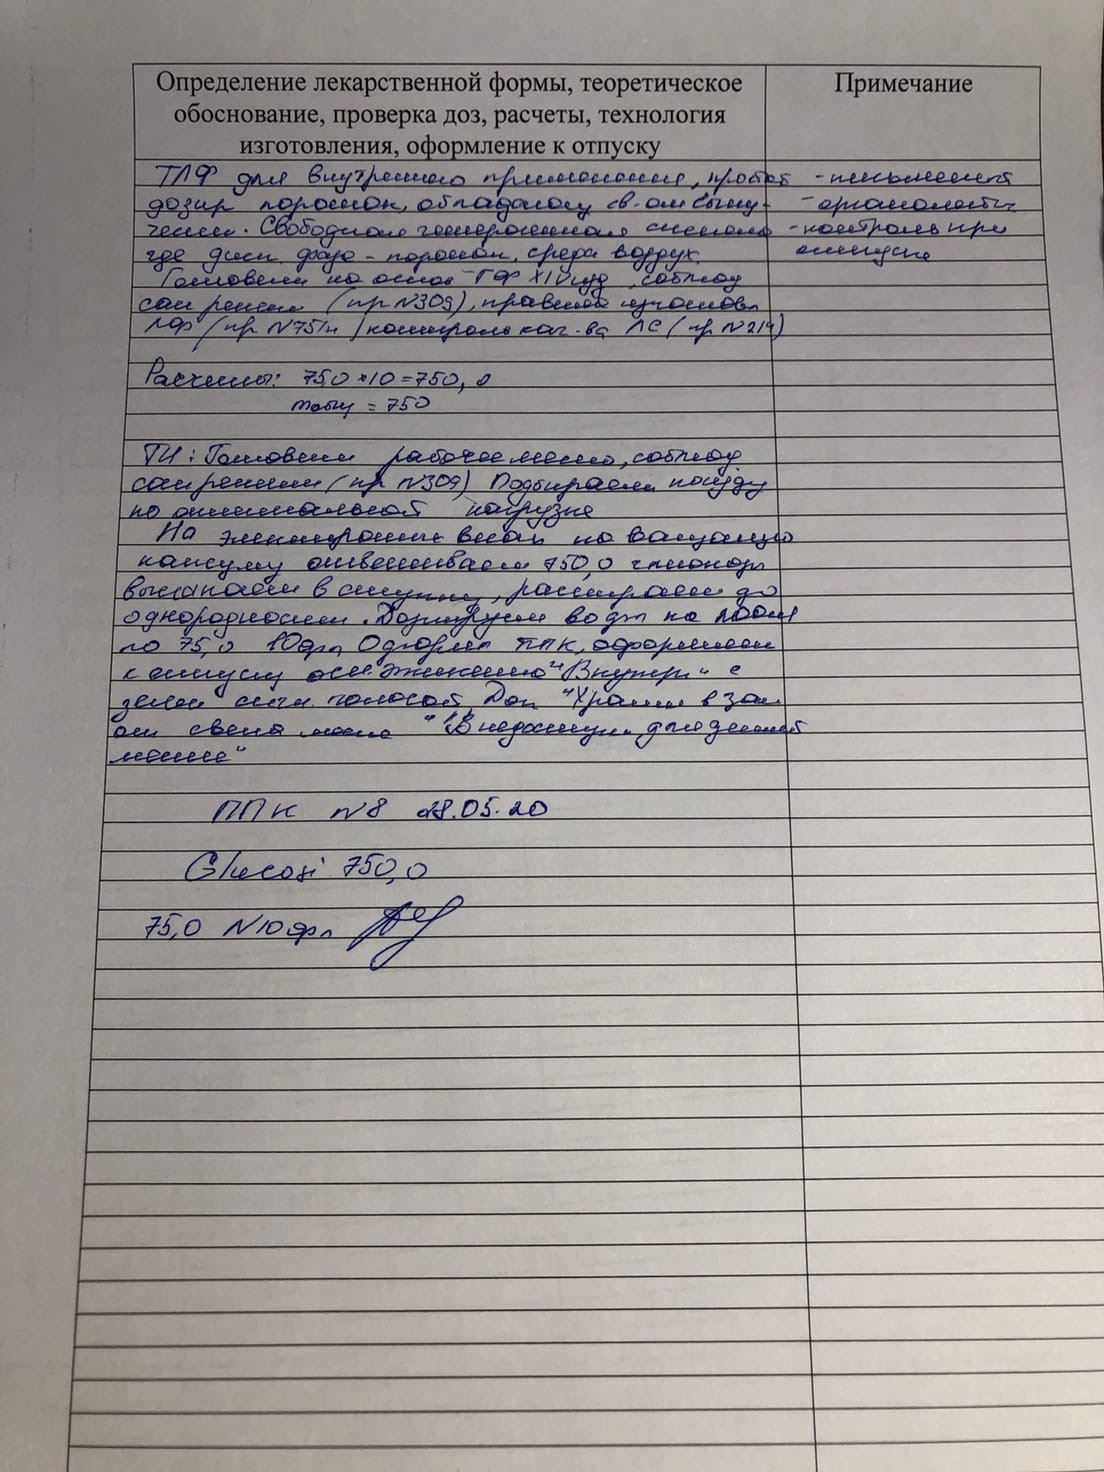 Определение лекарственной формы, теоретическое
обоснование, проверка доз, расчеты, технология
изготовления, оформление к отпуску
Примечание
ТЛФ для внутреннего применения, простой
дозир порошок, обладающ св-ом
Свободная система
где дисп. фаза - порошок, среда воздух.
Готовим на основ ГФ XIV изд, соблюд
сан режим (пр N309), правила изготовл
ЛФ (пр N751н) контроль кач-ва ЛС (пр N214)
- письменный
- органолепт
- контроль при
отпуске
Расчеты: 75,0 × 10 = 750,0
= 750
ТИ: Готовим рабочее место, соблюд.
сан режим (пр N309) Подбираем посуду
по оптимальной нагрузке
На электронных весах на
капсулу отвешиваем 750,0 глюкозы
высыпаем в ступку, растираем до
однородности. Дозируем
по 75,0 10 фл ППК, оформляем
к отпуску осн. этикетка "Внутри" с
зелен сигн. полосой. Доп "Хранить в защ
от света месте" "В недоступн. для детей
месте"
ППК N8 28.05.20
Glucosi 750,0
75,0 N10 фл